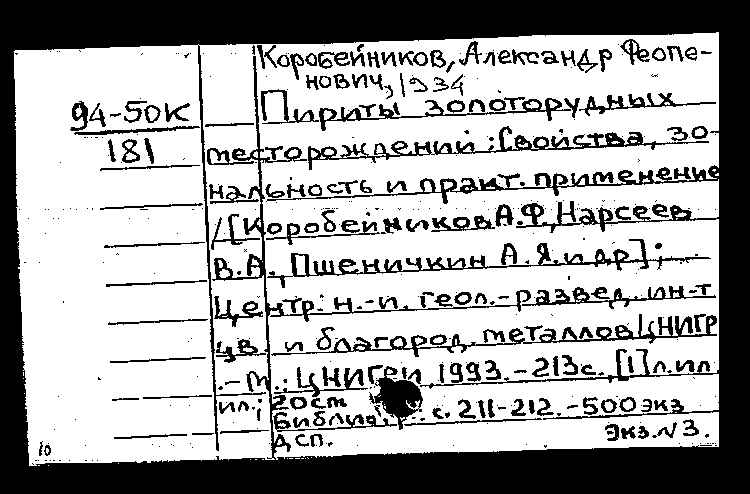 Коробейников, Александр Феопе-
нович, 1934
94-50К
181
Пириты золоторудных
месторождений : [свойства, зо-
нальность и практ. применение
/ [Коробейников А.Ф, Нарсеев
В.А., Пшеничкин А.Я. и др] ;
Центр. н.-и. геол.-развед. ин-т
цв. и благород. металлов ЦНИГР
. - М.: ЦНИГРИ, 1993. - 213с., [1] л. ил
ил.; 20 см
Библиогр.: с. 211-212. - 500 экз
Дсп.
Экз. №3.
10